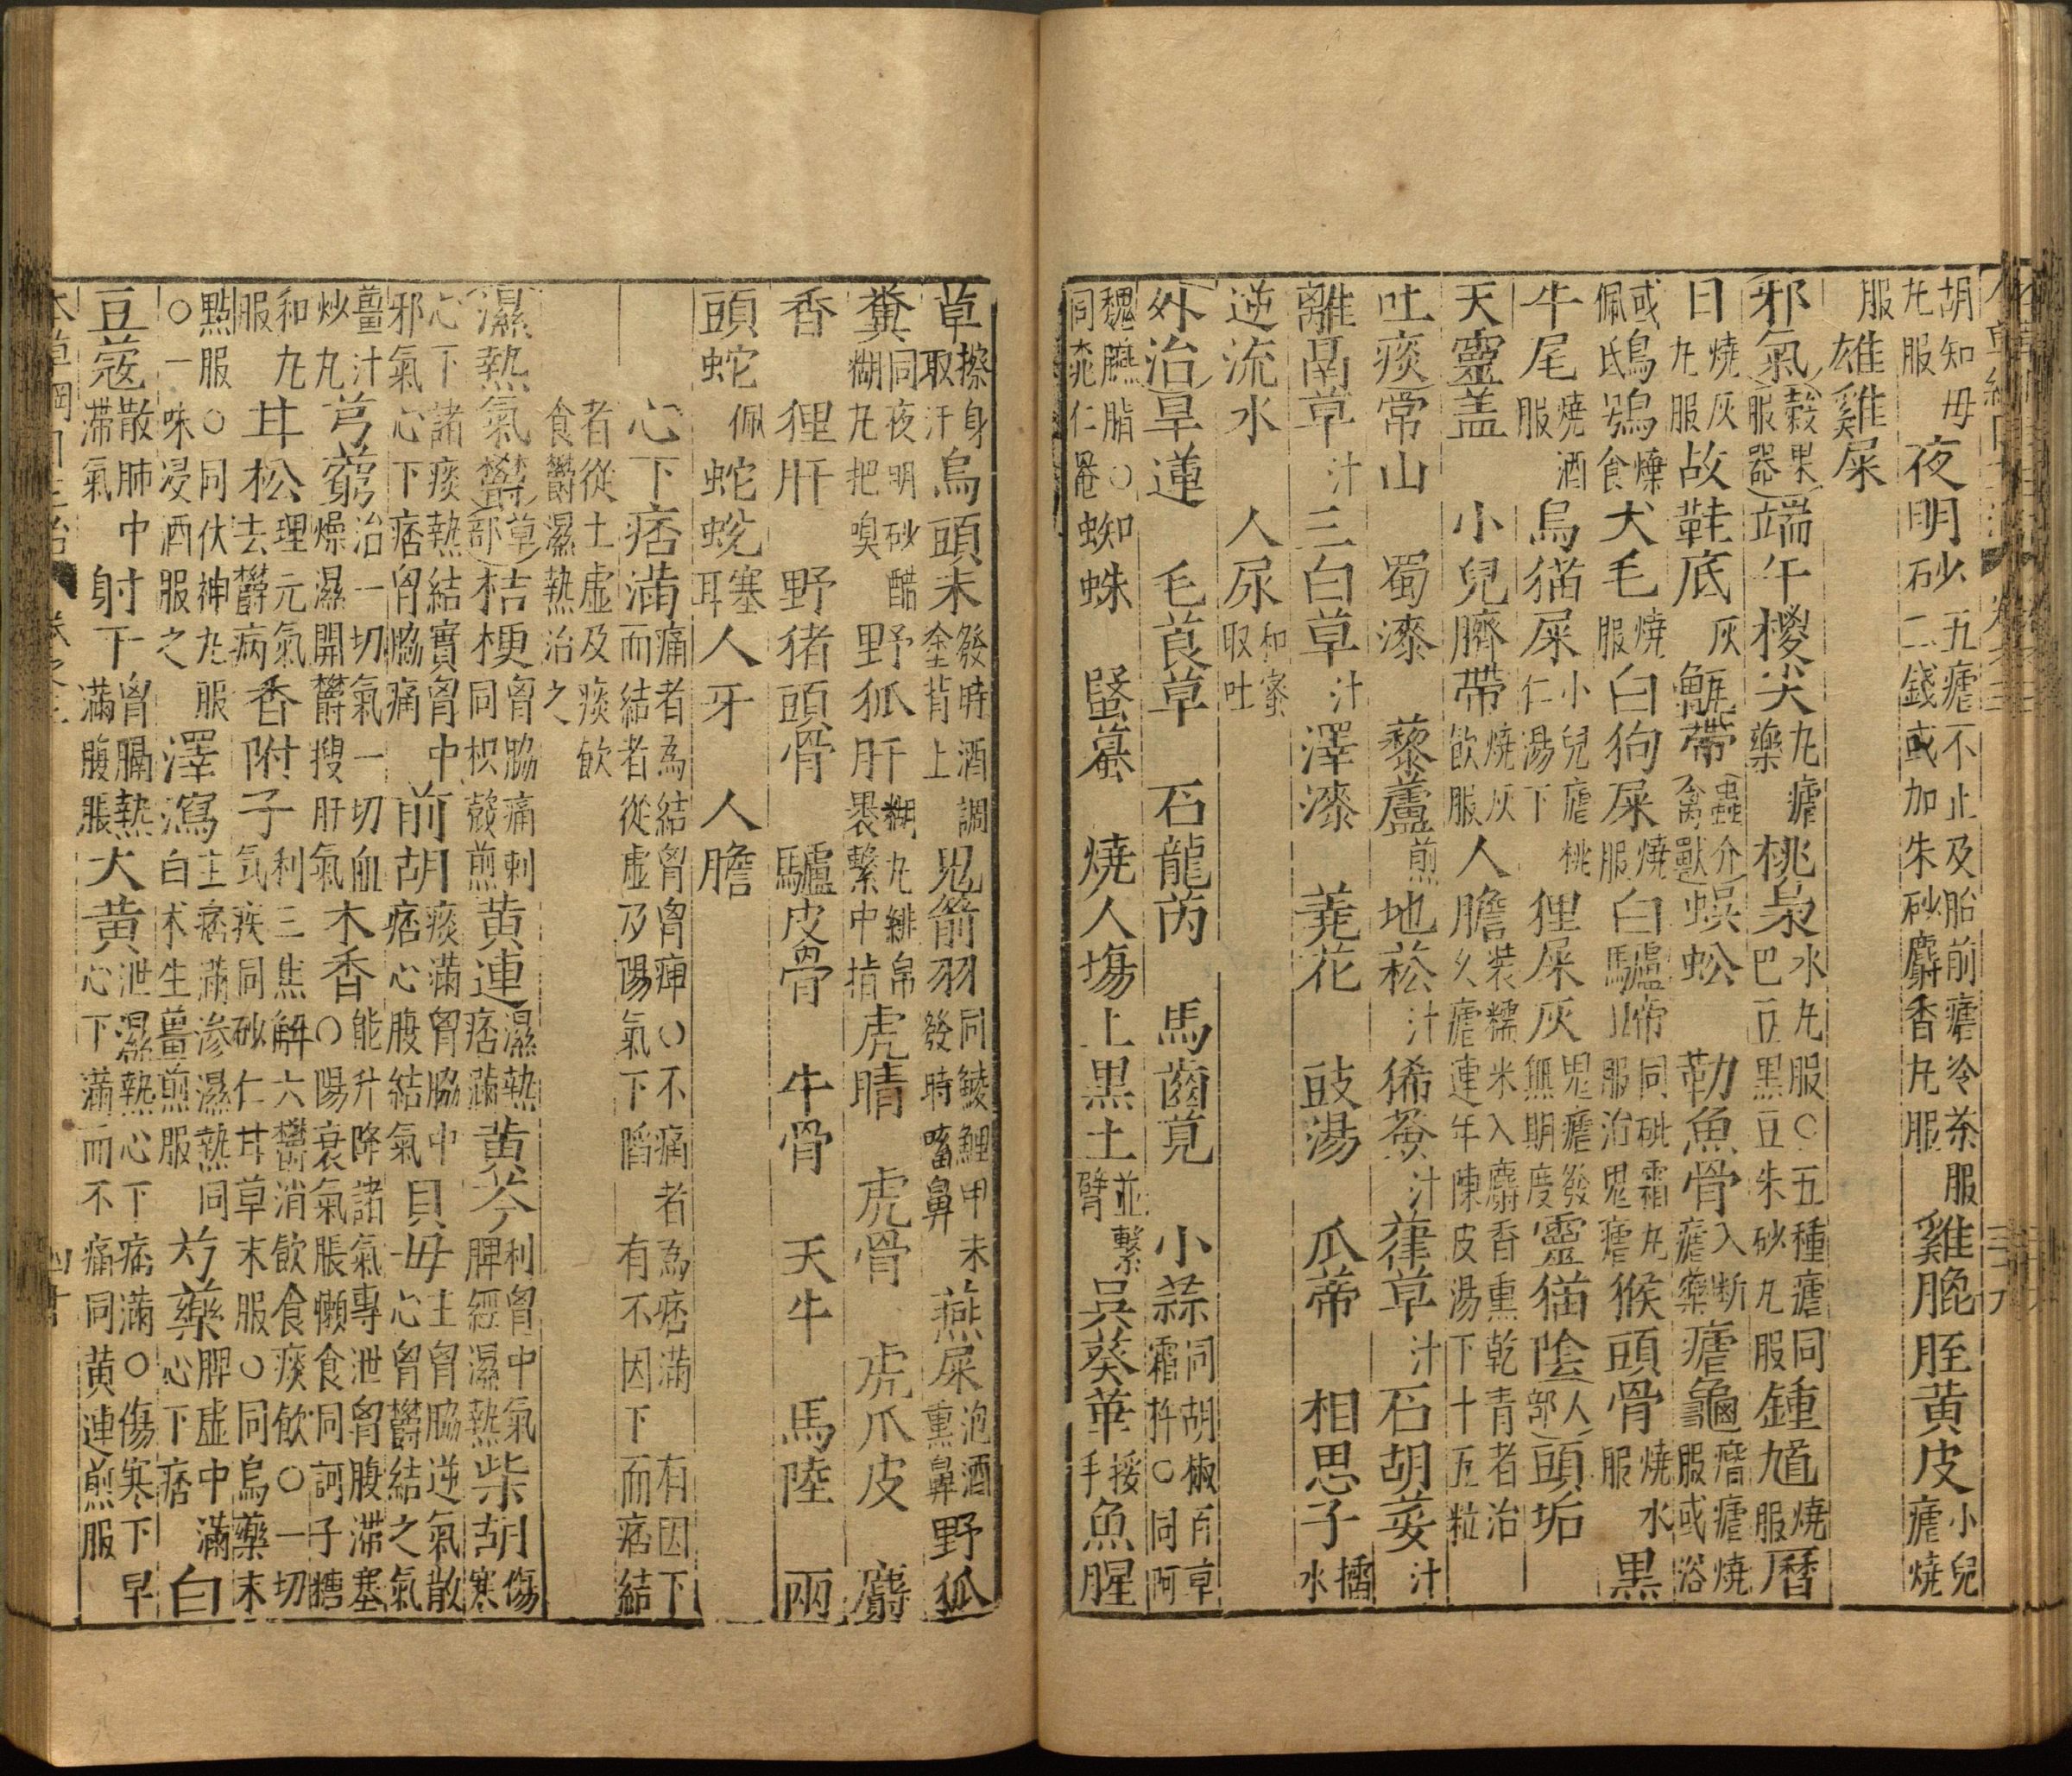 胡知母丸服夜明砂五瘧不止及胎前瘧冷茶服二錢或加朱砂麝香丸服雞脕胵黄皮小兒瘧燒
服雄雞屎
邪氣穀果服器端午糉尖丸瘧藥桃梟水丸服○五種瘧同巴豆黑豆朱砂丸服鍾馗燒服曆
日燒灰丸服故鞋底灰帶蟲介禽獸蜈蚣勒魚骨入断瘧藥瘧龜瘧燒服或浴
或佩鴟鵂煠食犬毛燒服白狗屎燒服白驢蹄同砒霜丸服治鬼瘧猴頭骨燒水服黒
牛尾燒酒服烏猫屎小兒瘧桃仁湯下狸屎灰鬼瘧發無期度靈猫陰人部頭垢
天靈盖小兒臍帶燒灰飲服人膽裝糯米入麝香熏乾青者治久瘧連年陳皮湯下十五粒
吐痰常山蜀漆藜蘆煎地菘汁豨薟汁葎草汁石胡荽汁
離鬲草汁三白草汁澤漆蕘花豉湯瓜蒂相思子擂水
逆流水人尿和蜜取吐
外治旱蓮毛茛草石龍芮馬齒莧小蒜同胡椒百草霜杵○同阿
魏臙脂○同桃仁罨蜘蛛蝦蟇燒人場上黒土並繫臂吳葵華挼手魚腥
草擦身取汗烏頭末發時酒調塗背上鬼箭羽同鯪鯉甲末發時㗜鼻燕屎泡酒熏鼻野狐
糞同夜明砂醋糊丸把嗅野狐肝糊丸緋帛裹繫中指虎睛虎骨虎爪皮麝
香狸肝野猪頭骨驢皮骨牛骨天牛馬陸兩
頭蛇佩蛇蛻塞耳人牙人膽
心下痞滿痛者為結胷胷痺○不痛者為痞滿有因下而結者從虛及陽氣下陷有不因下而痞結
者從土虛及痰飲食鬱濕熱治之
濕熱氣鬱草部桔梗胷脇痛刺同枳殼煎黄連濕熱痞滿黄芩利胷中氣脾經濕熱柴胡傷寒
心下諸痰熱結實胷中邪氣心下痞胷脇痛前胡痰滿胷脇中痞心腹結氣貝母主胷脇逆氣散心胷鬱結之氣
薑汁炒丸芎藭治一切氣一切血燥濕開鬱搜肝氣木香能升降諸氣專泄胷腹滯塞○陽衰氣脹懶食同訶子糖
和丸服甘松理元氣去鬱病香附子利三焦解六鬱消飲食痰飲○一切气疾同砂仁甘草末服○同烏藥末
點服○同伏神丸服○一味浸酒服之澤瀉主痞滿滲濕熱同白术生薑煎服芍藥脾虛中滿心下痞白
豆蔻散肺中滯氣射干胷膈熱滿腹脹大黄泄濕熱心下痞滿○傷寒下早心下滿而不痛同黄連煎服